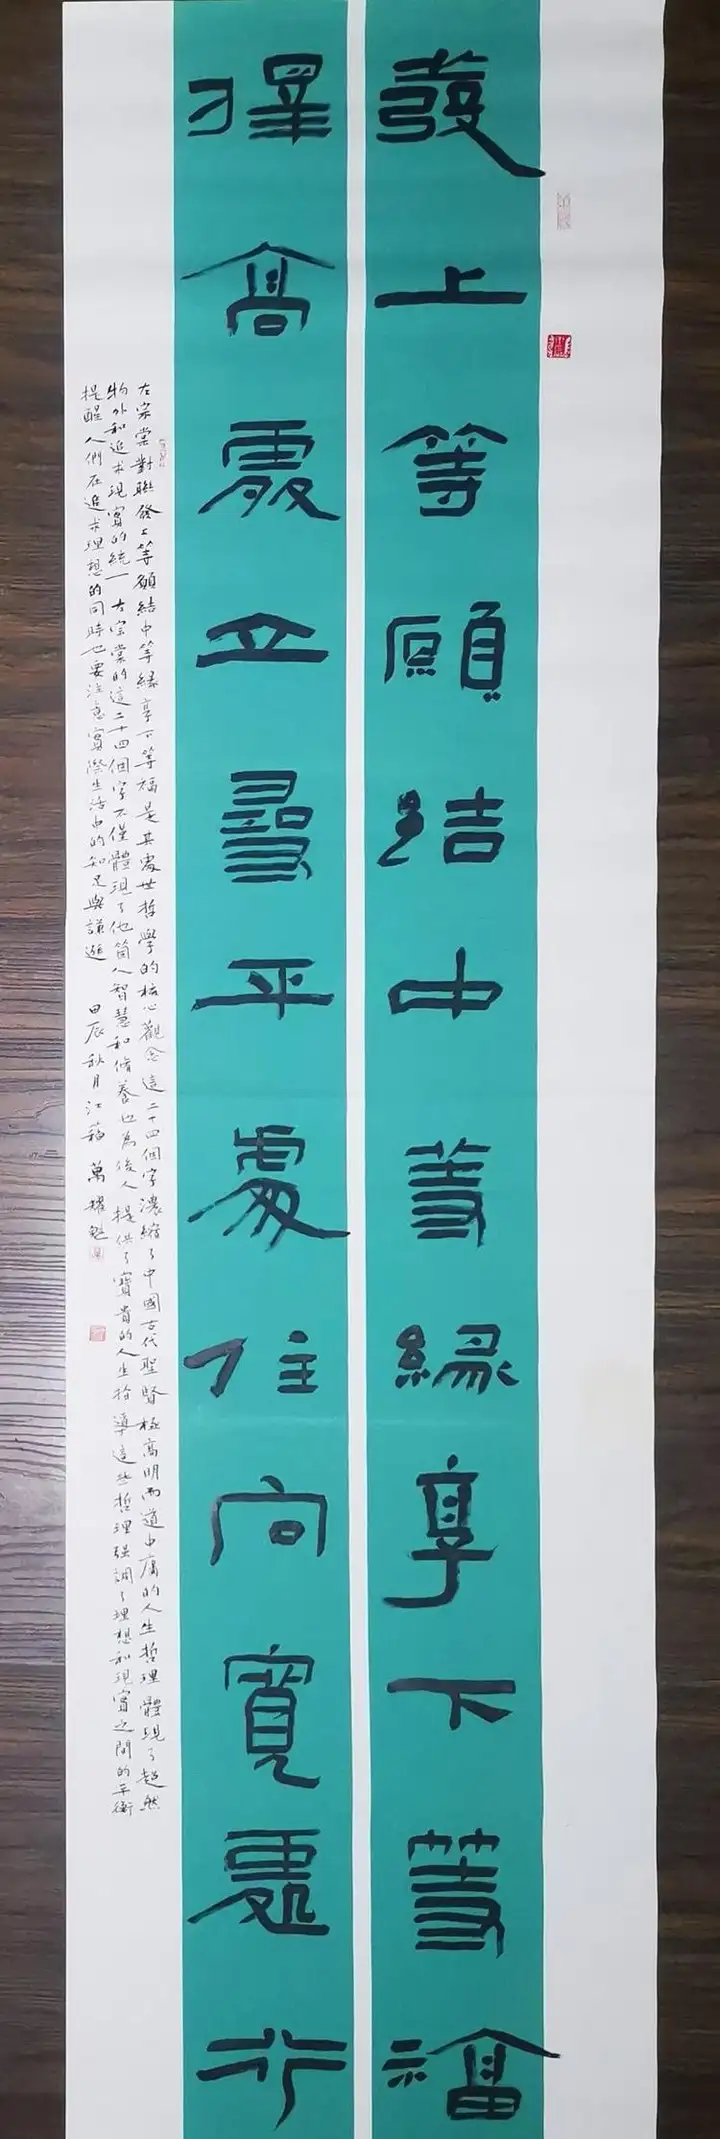 發上等願結中等緣享下等福
擇高處立尋平處住向寬處行
左宗棠對聯發上等願結中等緣享下等福是其處世哲學的核心觀念這二十四個字濃縮了中國古代聖賢極高明而道中庸的人生哲理體現了超然
物外和追求現實的統一左宗棠的這二十四個字不僅體現了他個人智慧和修養也為後人提供了寶貴的人生指導這些哲理強調了理想和現實之間的平衡
提醒人們在追求理想的同時也要注意實際生活中的知足與謙遜 甲辰秋月江蘇萬耀魁